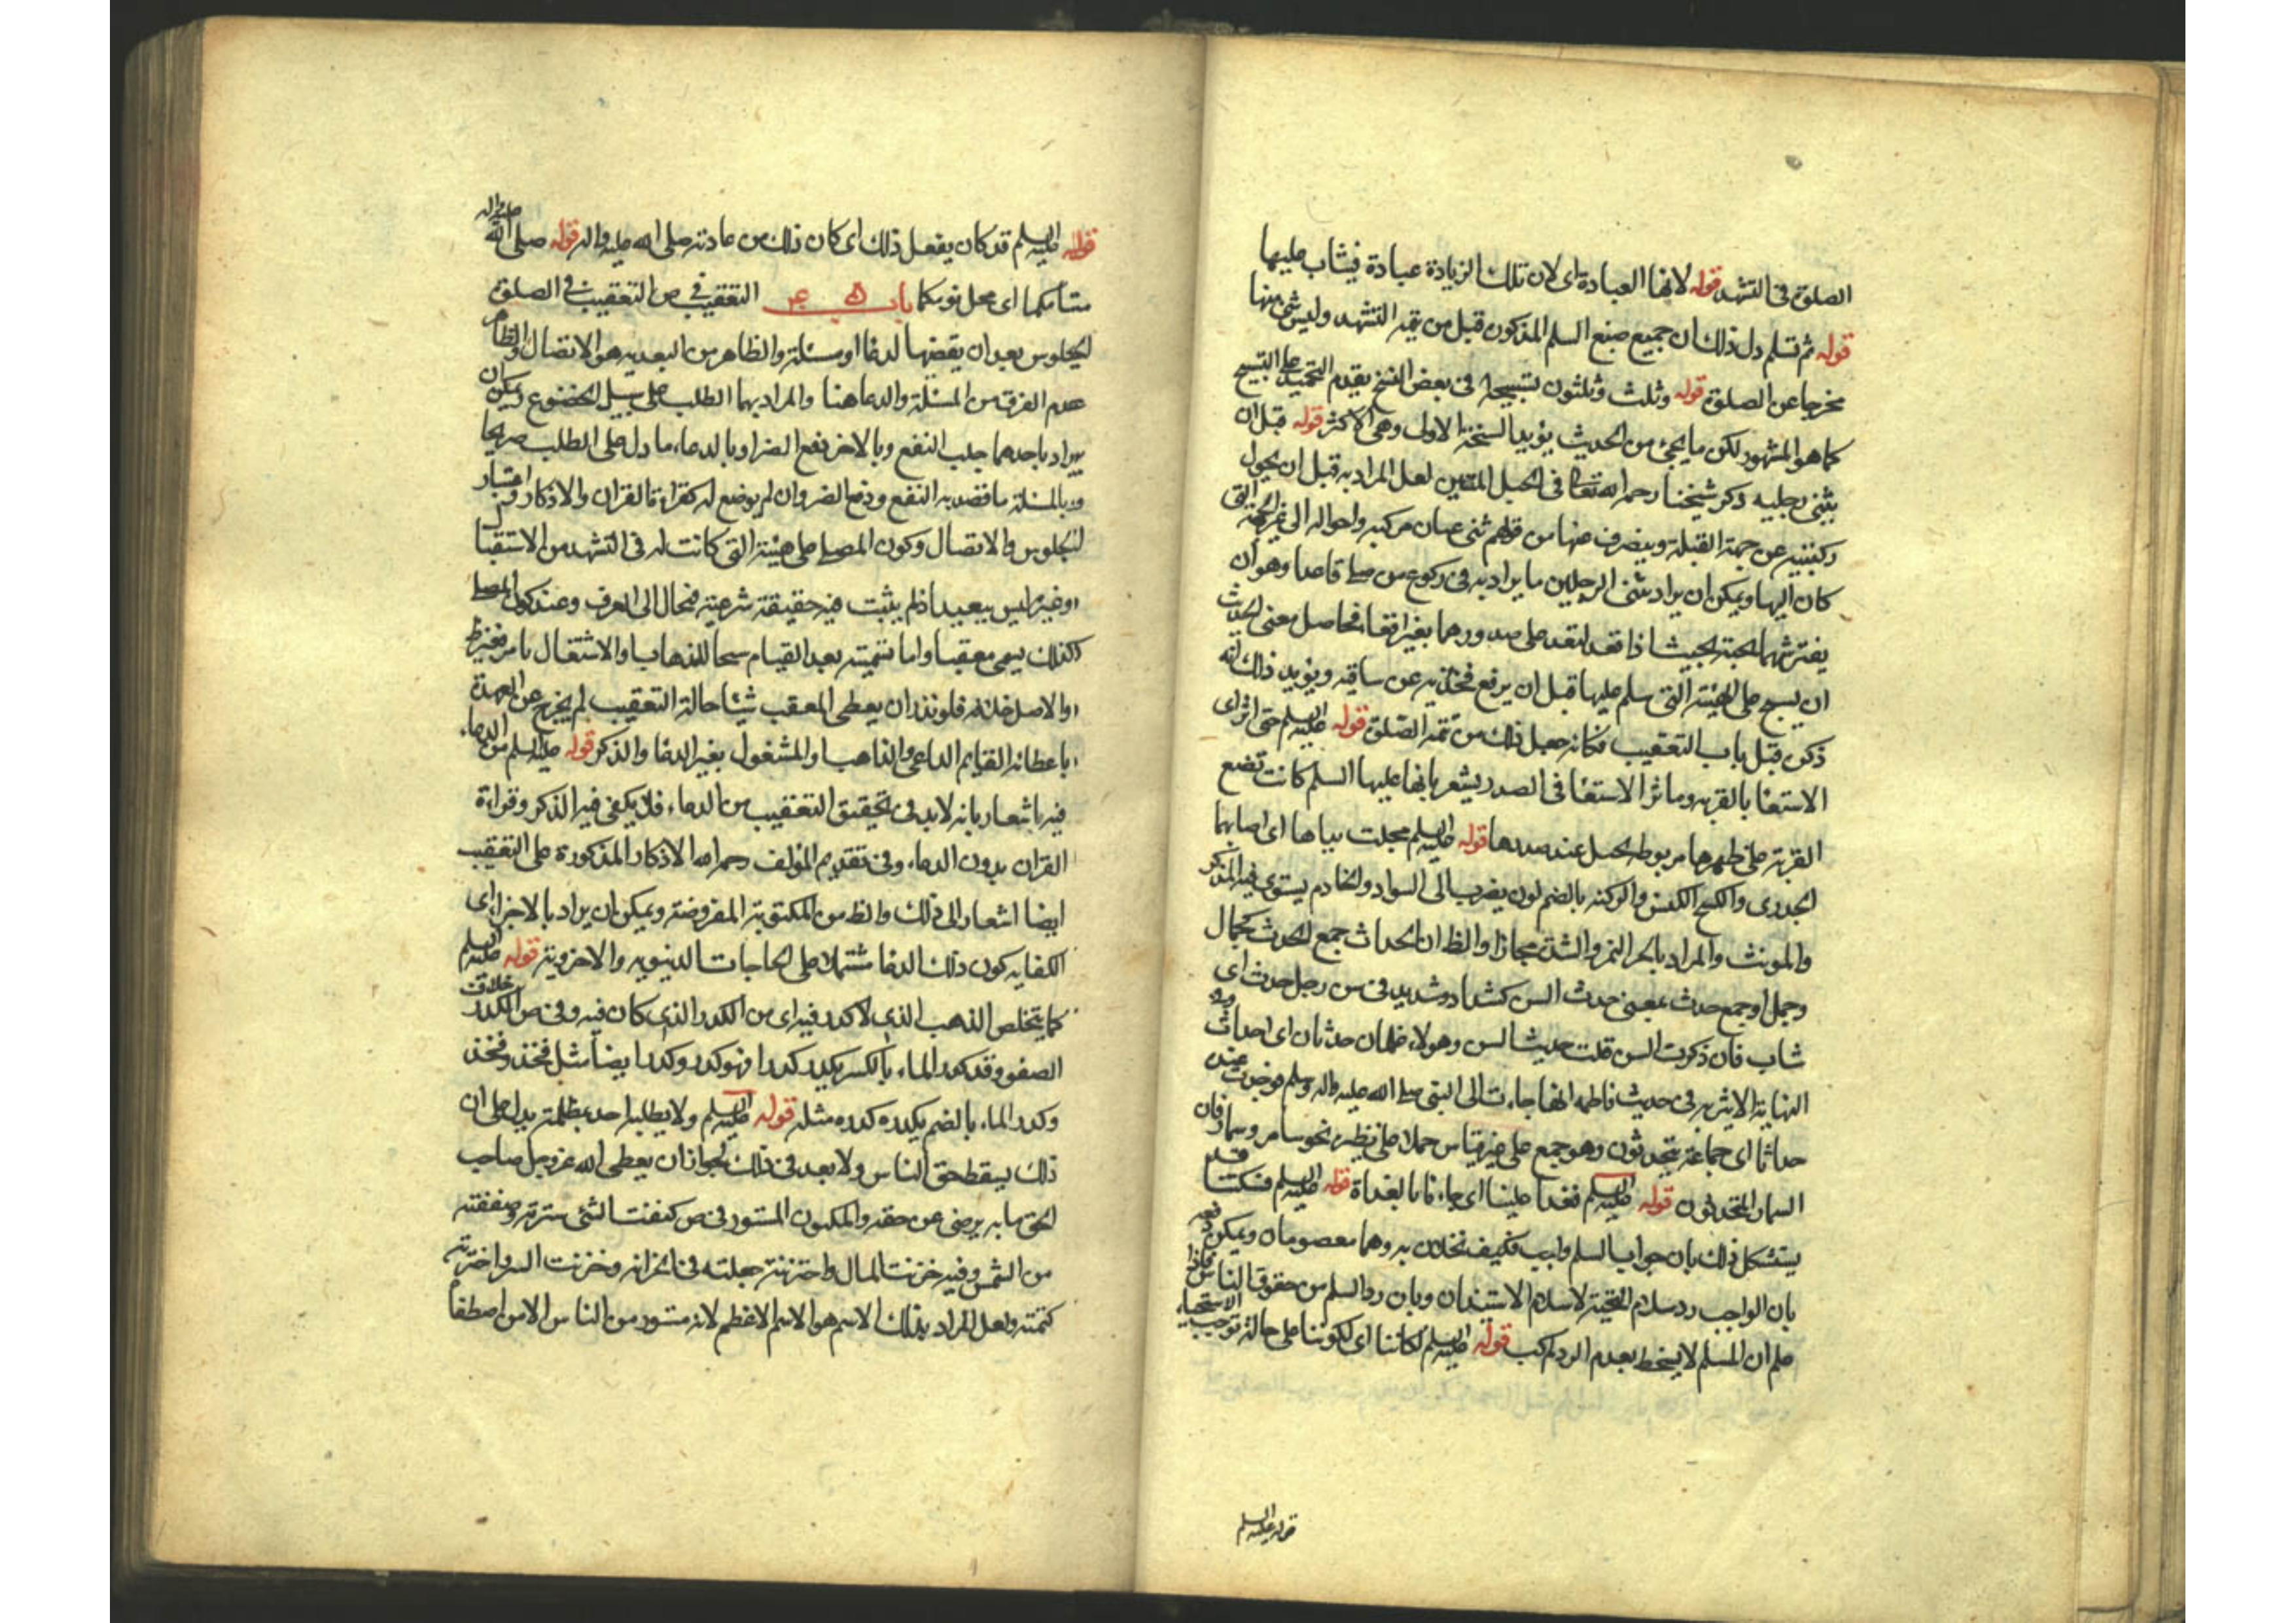 الصلوة فى التشهد قوله لانها العبادة اى لان تلك الزيادة عبادة فيثاب عليها
قوله ثم تسلم دل ذلك ان جميع صيغ السلم المذكورة قبل من تتمه التشهد وليس شئ منها
مخرجا عن الصلوة قوله وثلث وثلثون تسبيحة فى بعض النسخ بتقديم التحميد على التسبيح
كما هو المشهور لكن ما يجئ من الحديث يؤيد النسخة الاولى وهى الاكثر قوله قبل ان
يثنى رجليه ذكر شيخنا رحمه الله تعالى فى الحبل المتين لعل المراد به قبل ان يحول
ركبتيه عن جهة القبلة وينصرف عنها من قولهم ثنى عنان مركبه واحواله الى غير الجهة التى
كان اليها ويمكن ان يراد بثنى الرجلين ما يراد به فى ركوع من صلى قاعدا وهو ان
يفترشهما بحيث اذا قعد لقعد على صدورهما بغير اقعاء فحاصل معنى الحديث
ان يسبح على الهيئة التى سلم عليها قبل ان يرفع فخذيه عن ساقيه ويؤيد ذلك انه
ذكره قبل باب التعقيب فكانه جعل ذلك من تتمة الصلوة قوله عليه السلم حتى اثر اى
الاستقاء بالقربه وماثر الاستقا فى الصدر يشعر بانها عليها السلم كانت تضع
القربة على ظهرها مربوطه بحبل عند صدرها قوله عليه السلم مجلت يداها اى اصابهما
الجدرى والكسح الكنس والوكنه بالضم لون يضرب الى السواد والخادم يستوى فيه المذكر
والمونث والمراد بالحر التمر والشدة مجازا والظ ان الحداث جمع لحدث كجمال
وجمل او جمع حدث بمعنى حدث السن كشداد وشديد فى س رجل حدث اى
شاب فان ذكرت السن قلت حديث السن وهولاء غلمان حدثان اى احداث وفى
النهاية الاثيريه فى حديث فاطمه انها جاءت الى النبى صلى الله عليه واله وسلم فوجدت عنده
حداثا اى جماعة يتحدثون وهو جمع على غير قياس حملا على نظيره نحو سامر وسمار فان
السمار المتحدثون قوله عليه السلم فغدا علينا اى جاءنا بالغداة قوله عليه السلم فسكتنا قد
يستشكل ذلك بان جواب السلم واجب فكيف تخلان به وهما معصومان ويمكن دفعه
بان الواجب رد سلام التحية لاسلام الاستيذان وبان رد السلم من حقوق الناس فاذا
علم ان المسلم لا يسخط بعدم الرد لم يجب قوله عليه السلم لمكاننا اى لكوننا على حالة توجب الاستحياء
قوله عليه السلم
قوله عليه السلم قد كان يفعل ذلك اى كان ذلك من عادته صلى الله عليه واله قوله صلى الله عليه واله
منامكما اى محل نومكما باب التعقيب فى ص التعقيب فى الصلوة
الجلوس بعد ان يقضيها لدعا او مسئلة والظاهر من البعديه هو الاتصال والظاهر
عدم الفرق من المسئلة والدعا هنا والمراد بهما الطلب على سبيل الخضوع ويمكن ان
يراد باحدهما جلب النفع وبالاخر دفع الضر او بالدعاء ما دل على الطلب صريحا
وبالمسئلة ما قصد به النفع ودفع الضر وان لم يوضع له كقراءة القران والاذكار واعتبار
الجلوس والاتصال وكون المصلى على هيئته التى كانت له فى التشهد من الاستقبا
اوغيره ليس ببعيد اذ لم يثبت فيه حقيقة شرعية فيحال الى العرف وعند كون المصلى
كذلك يسمى معقبا واما تسميته بعد القيام سيما للذهاب والاشتغال بامر فغير ظ
والاصل خلافه فلو نذر ان يعطى المعقب شيئا حالة التعقيب لم يخرج عن العهدة
باعطائه القايم الداعى والذاهب والمشغول بغير الدعا والذكر قوله عليه السلم من الدعاء
فيه اشعار بانه لابد فى تحقيق التعقيب من الدعاء فلا يكفى فيه الذكر وقراءة
القران بدون الدعاء وفى تقديم المؤلف رحمه الله الاذكار المذكورة على التعقيب
ايضا اشعار الى ذلك والظ من المكتوبة المفروضة ويمكن ان يراد بالاجزا اى
الكفايه كون ذلك الدعا مشتملا على الحاجات الدنيويه والاخروية قوله عليه السلم
كما يتخلص الذهب الذى لا كدر فيه اى من الكدر الذى كان فيه وفى ص الكدر خلاف
الصفو وقد كدر الماء بالكسر يكدر كدرا فهو كدر وكدر ايضا مثل فخذ وفخذ
وكدر الماء بالضم يكدر كدره مثله قوله عليه السلم ولا يطلبه احد بمظلمة يدل على ان
ذلك يسقط حق الناس ولا بعد فى ذلك لجواز ان يعطى الله عز وجل صاحب
الحق ما به يرضى عن حقه والمكنون المستور فى ص كننت الشئ سترته وصنته
من الشمس وفيه خزنت المال واختزنته جعلته فى الخزانه وخزنت السر واختزنته
كتمته ولعل المراد بذلك الاسم هو الاسم الاعظم لانه مستور من الناس الا من اصطفاه